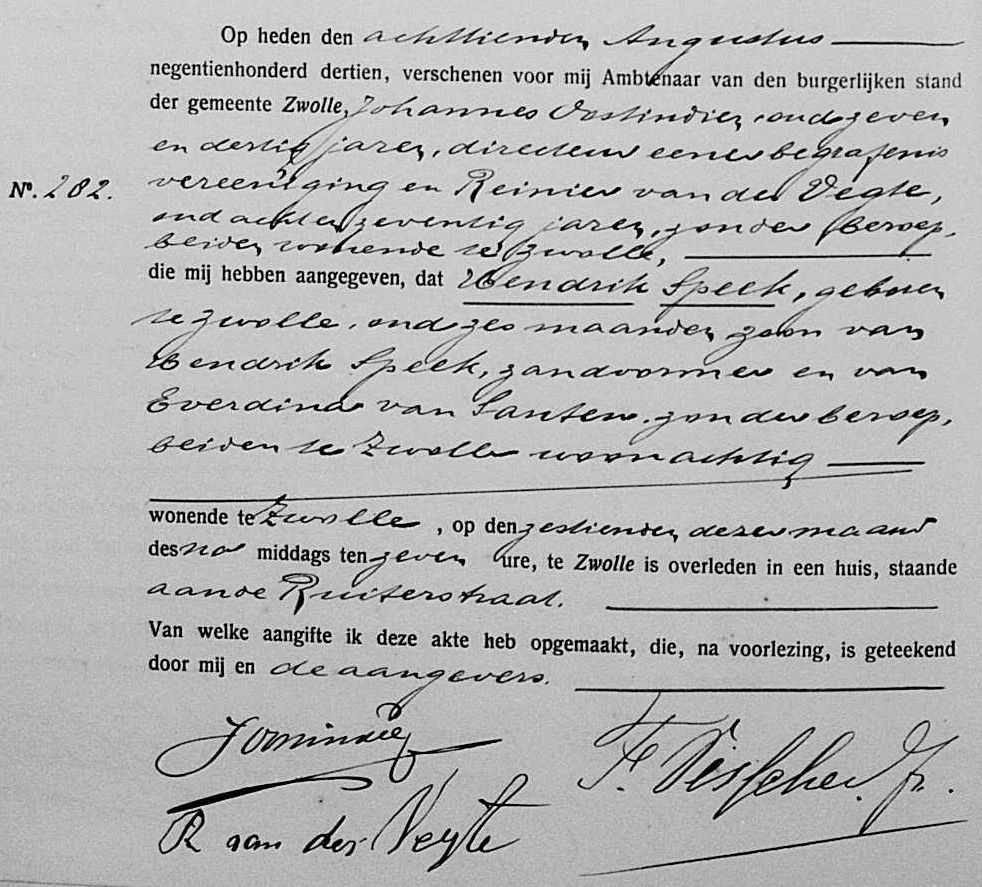 Op heden den achttienden Augustus
negentienhonderd dertien, verschenen voor mij Ambtenaar van den burgerlijken stand
der gemeente Zwolle, Johannes Oostindien, oud zeven
en dertig jaren, directeur eener begrafenis
Nº. 282. vereeniging en Reinier van der Vegte,
oud acht en zeventig jaren, zonder beroep,
beiden wonende te Zwolle,
die mij hebben aangegeven, dat Hendrik Speek, geboren
te Zwolle, oud zes maanden zoon van
Hendrik Speek, zandvormer en van
Everdina van Santen, zonder beroep,
beiden te Zwolle woonachtig
wonende te Zwolle, op den zestienden dezer maand
des na middags ten zeven ure, te Zwolle is overleden in een huis, staande
aan de Ruiterstraat.
Van welke aangifte ik deze akte heb opgemaakt, die, na voorlezing, is geteekend
door mij en de aangevers.
F. Visscher. Jr.
R van der Vegte